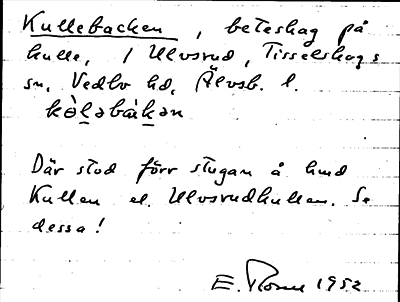 Kullebacken, beteshag på
kulle, / Ulvsrud, Tisselskogs
sn, Vedbo hd, Älvsb. l.
kòl̲əbàk̲ən
Där stod förr stugan å lmd
Kullen el. Ulvsrudkullen. Se
dessa!
E. 1952